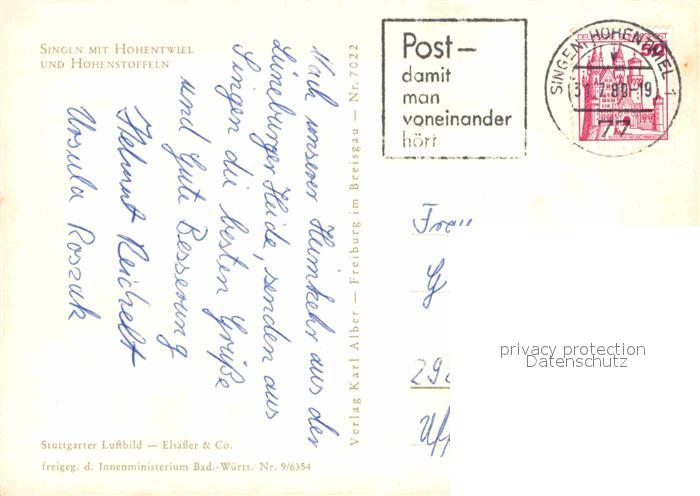 SINGEN MIT HOHENTWIEL
UND HOHENSTOFFELN
Nach unserer Heimkehr aus der
Lüneburger Heide, senden aus
Singen die besten Grüße
und Gute Besserung
Helmut Reichelt
Ursula Roszak
Stuttgarter Luftbild — Elsäßer & Co.
freigeg. d. Innenministerium Bad.-Württ. Nr. 9/6354
Verlag Karl Alber — Freiburg im Breisgau — Nr. 7022
Post —
damit
man
voneinander
hört
SINGEN, HOHENTWIEL 1
31.7.80-19
77
50
Frau
G
292
privacy protection
Datenschutz